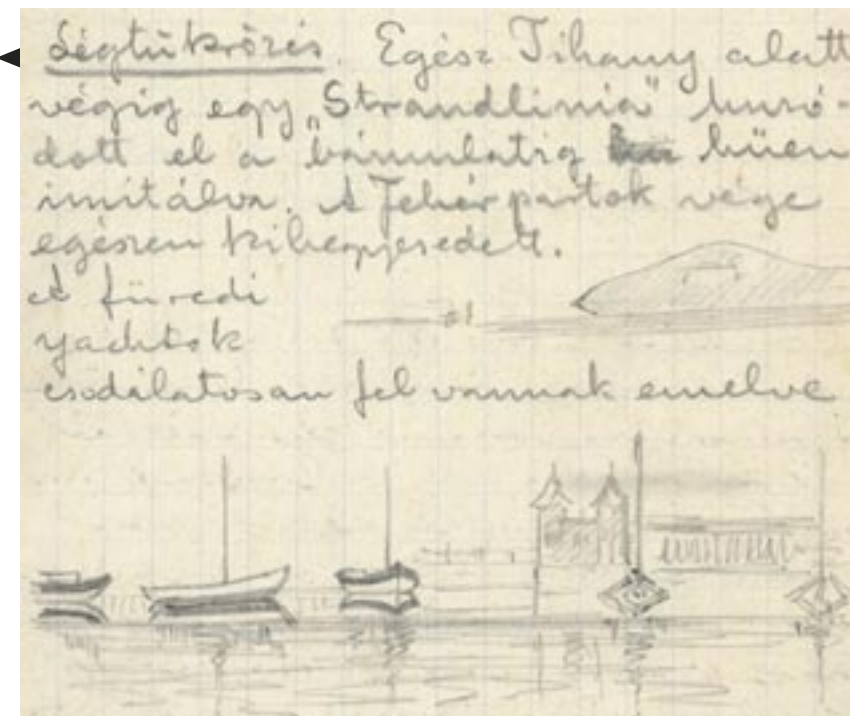 Légtükrözés. Egész Tihany alatt
végig egy „Strandlinia” huzó-
dott el a bámulatig hűen
imitálva. A Fehérpartok vége
egészen kihegyesedett.
A füredi
yachtok
csodálatosan fel vannak emelve